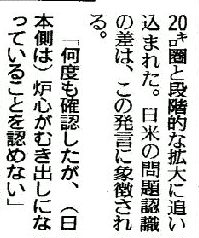 20㌔圏と段階的な拡大に追い
込まれた。日米の問題認識
の差は、この発言に象徴され
る。
「何度も確認したが、（日
本側は）炉心がむき出しにな
っていることを認めない」